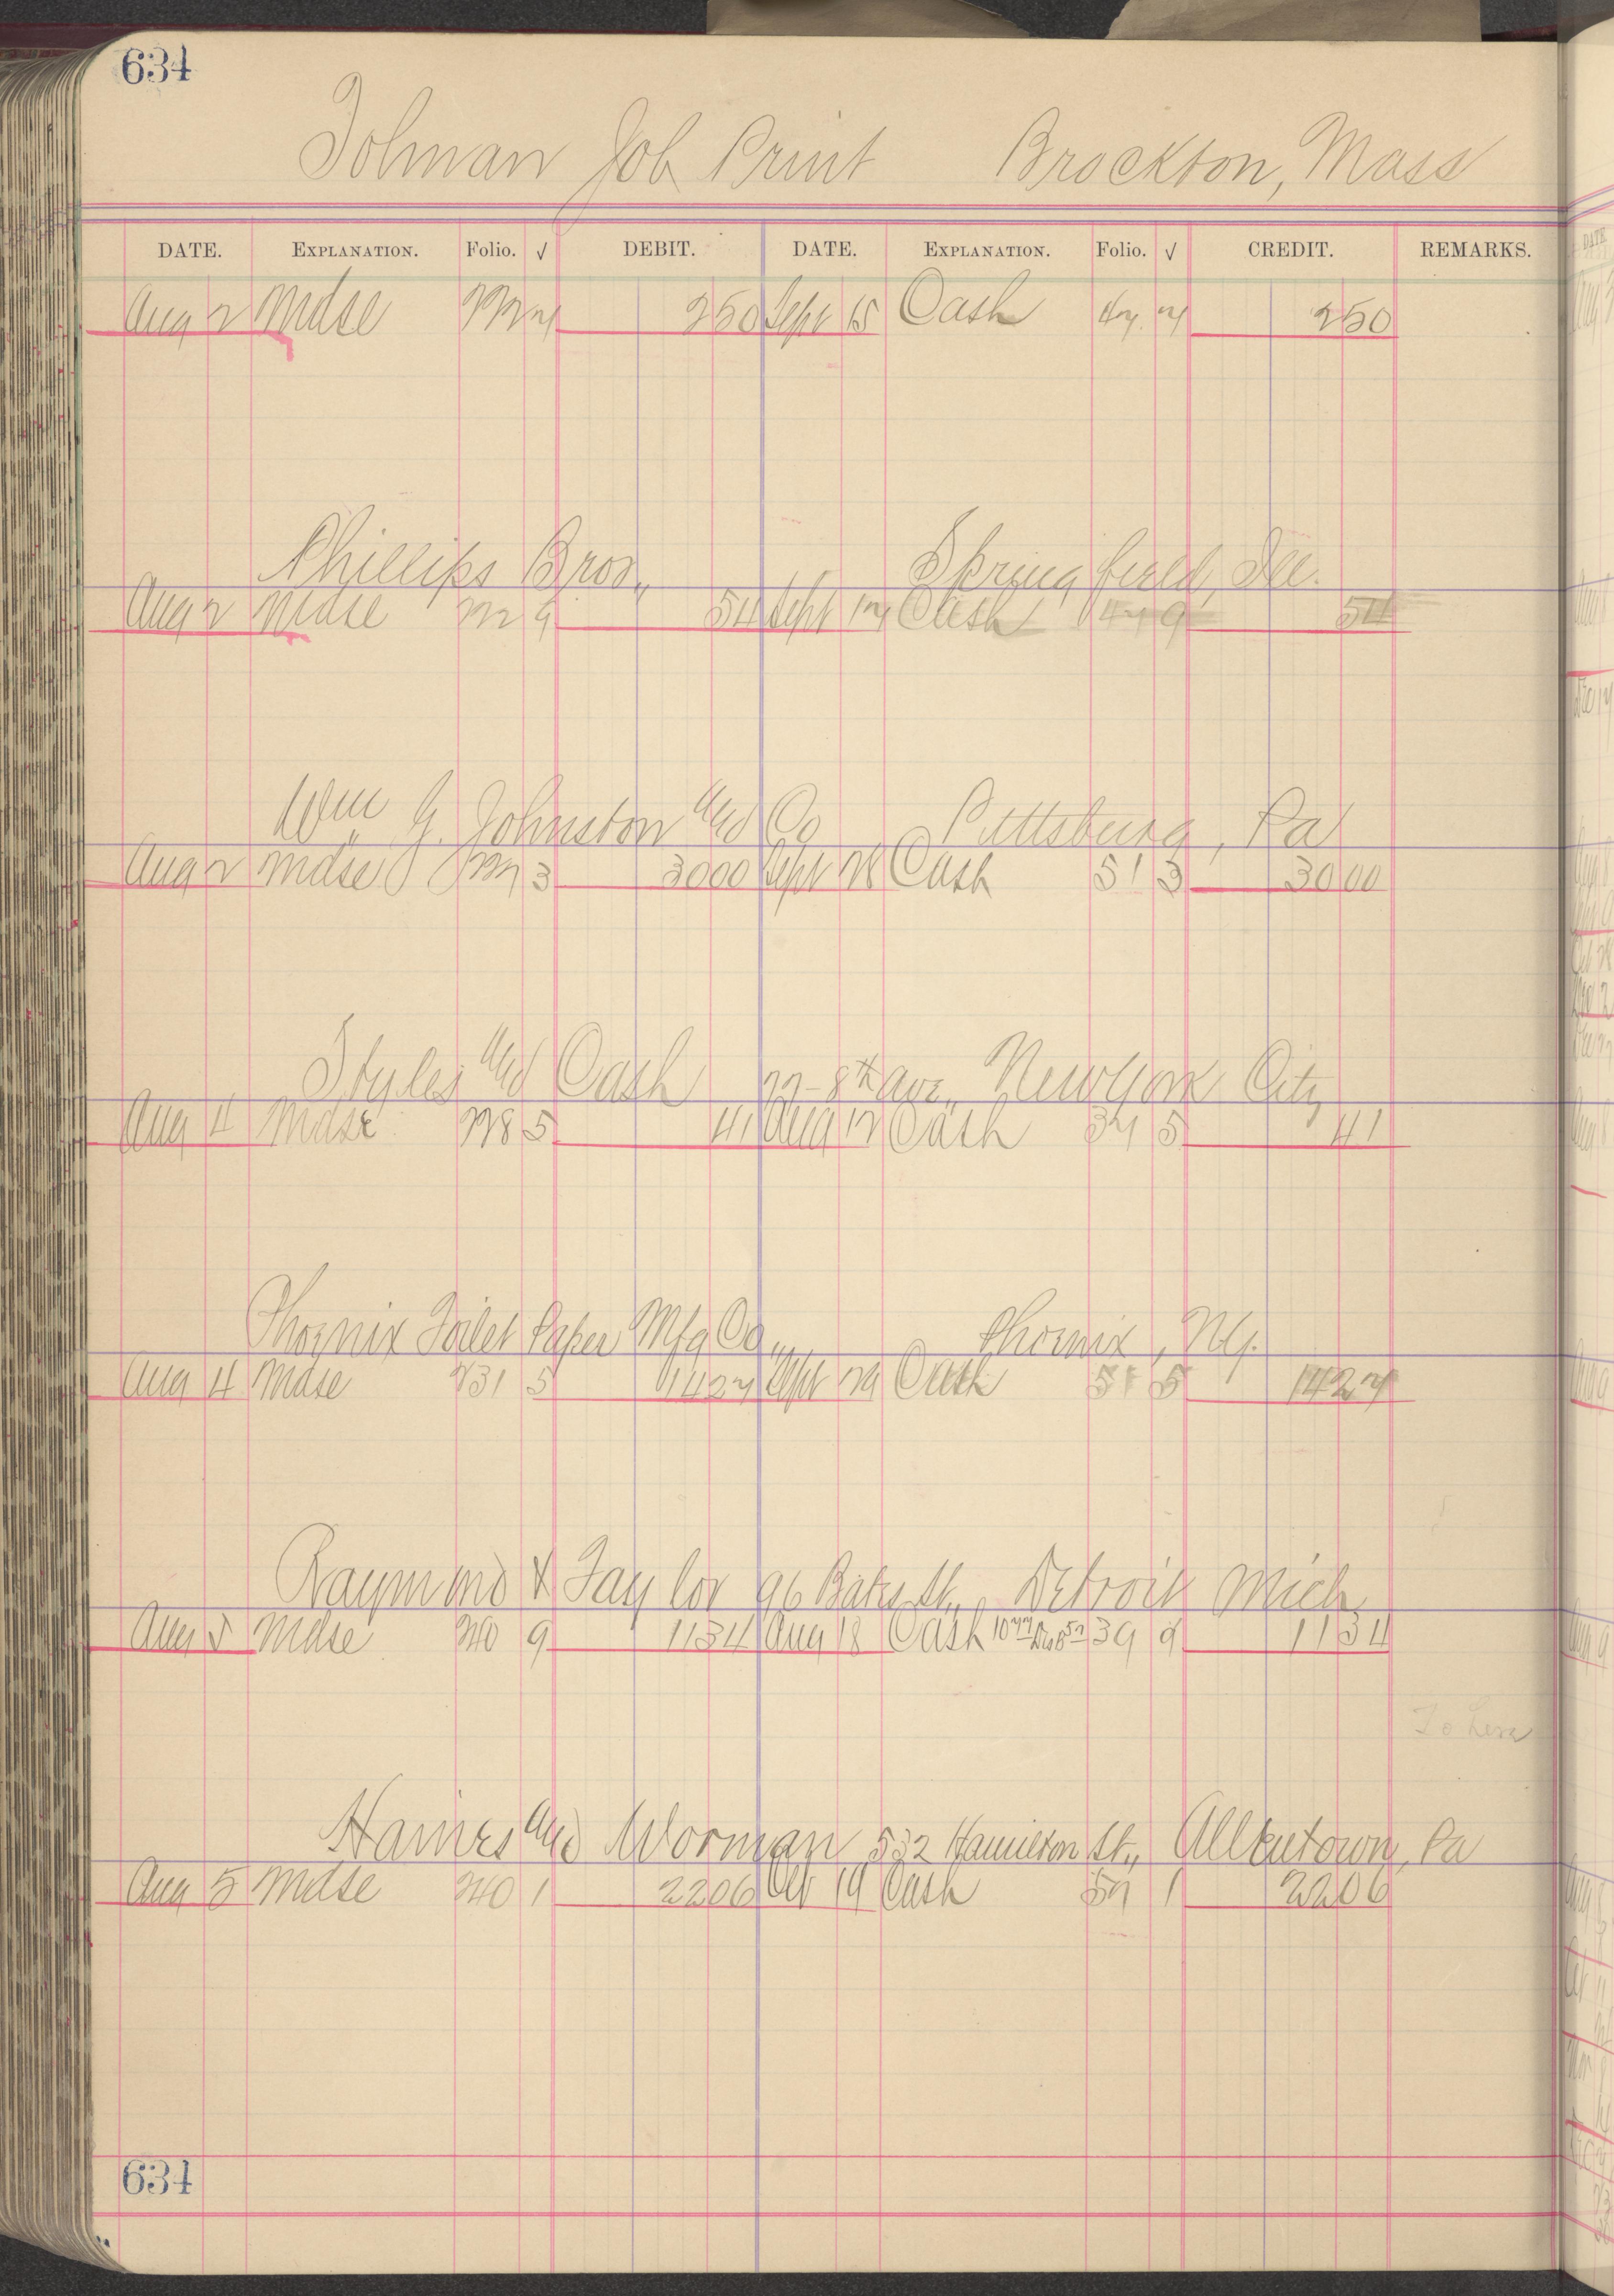 634
Tolman Job Print Brockton, Mass
DATE. EXPLANATION. Folio. √ DEBIT. DATE. EXPLANATION. Folio. √ CREDIT. REMARKS.
Aug 2 Mdse 250 Sept 15 Cash 250
Phillips Bros., Springfield, Ill.
Aug 2 Mdse 9 54 Sept Cash 9 54
Wm G. Johnston and Co Pittsburg, Pa
Aug 2 Mdse 3 3000 Sept 28 Cash 51 3 3000
Styles and Cash 77-8th Ave., New York City
Aug 4 Mdse 228 5 41 Aug 12 Cash 37 5 41
Phoenix Toilet Paper Mfg Co., Phoenix, NY.
Aug 4 Mdse 231 5 1427 Sept 29 Cash 51 5 1427
Raymond & Taylor 96 Bates St., Detroit Mich
Aug 5 Mdse 240 9 1134 Aug 18 Cash 39 9 1134
Haines and Worman 532 Hamilton St., Allentown, Pa
Aug 5 Mdse 240 1 2206 Oct 19 Cash 57 1 2206
634